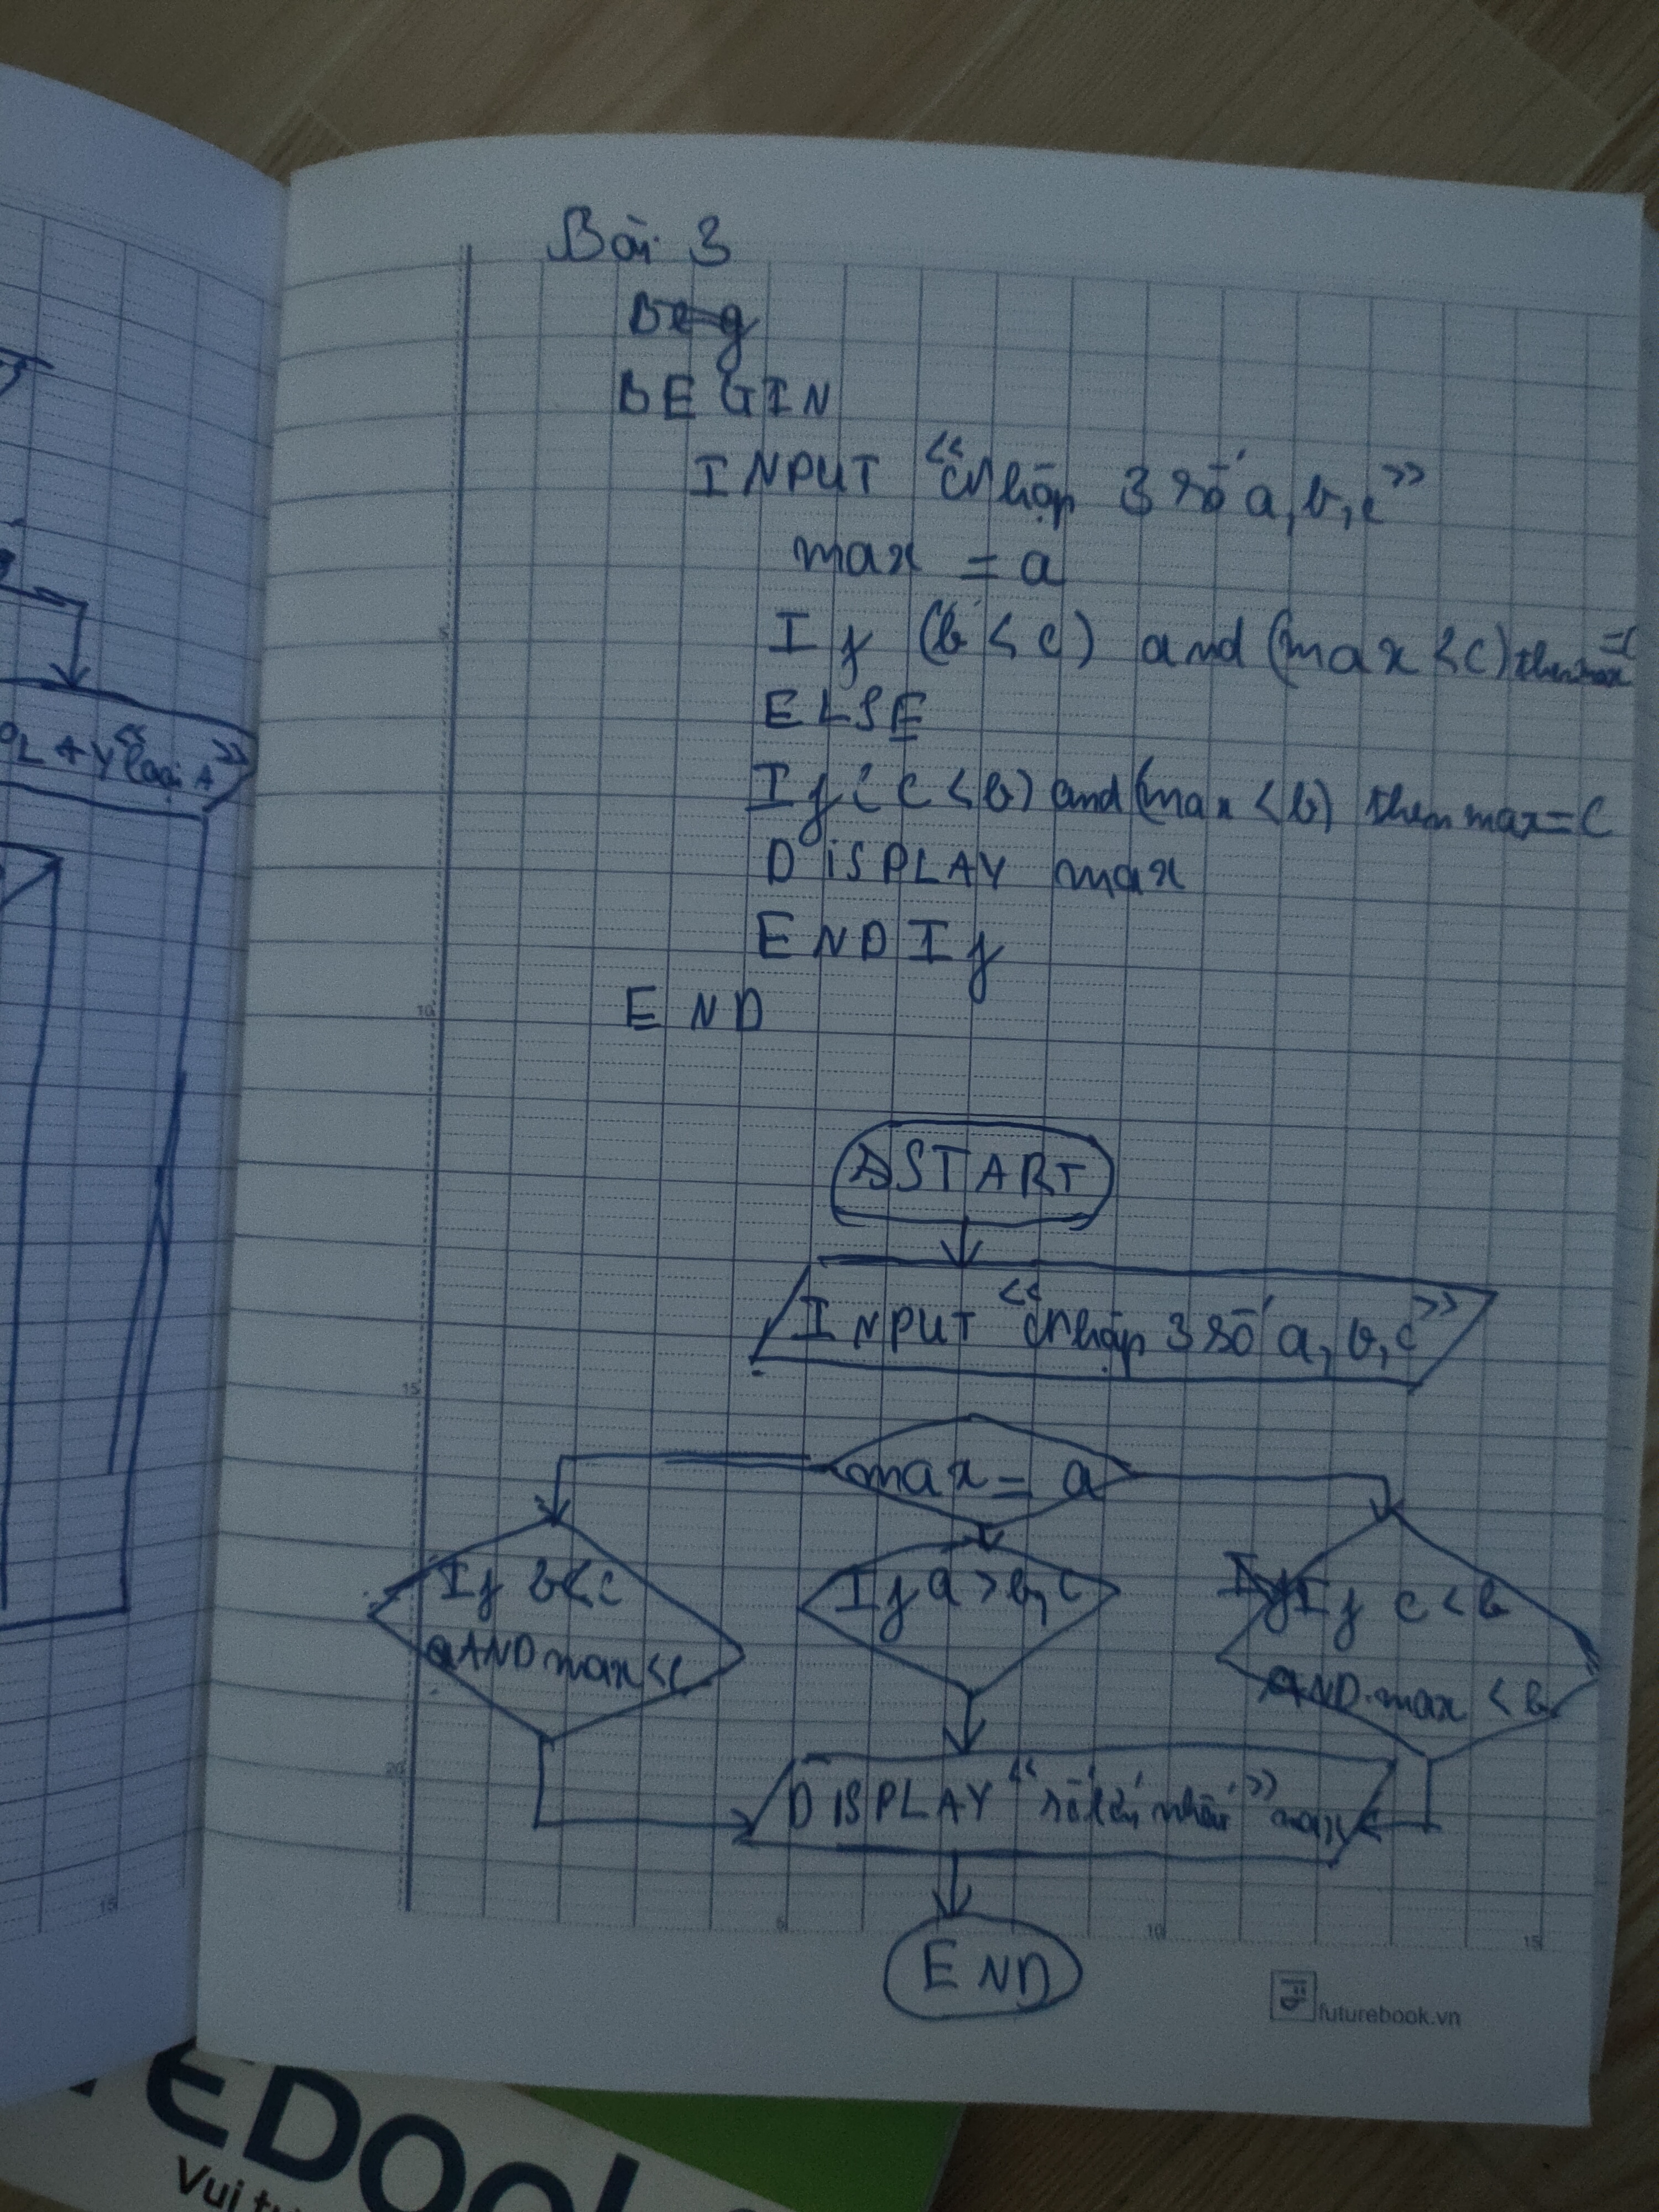 Bài 3
Beg
BEGIN
INPUT "Nhập 3 số a, b, c"
max = a
If (b < c) and (max < c) then max = c
ELSE
If (c < b) and (max < b) then max = c
DiSPLAY max
END If
END
START
INPUT "Nhập 3 số a, b, c"
max = a
If b < c
AND max < c
If a > b, c
If c < b
AND max < b
DISPLAY "số lớn nhất" max
END
PLAY "loại A"
5
10
15
20
5
10
15
15
futurebook.vn
EDoo
Vui